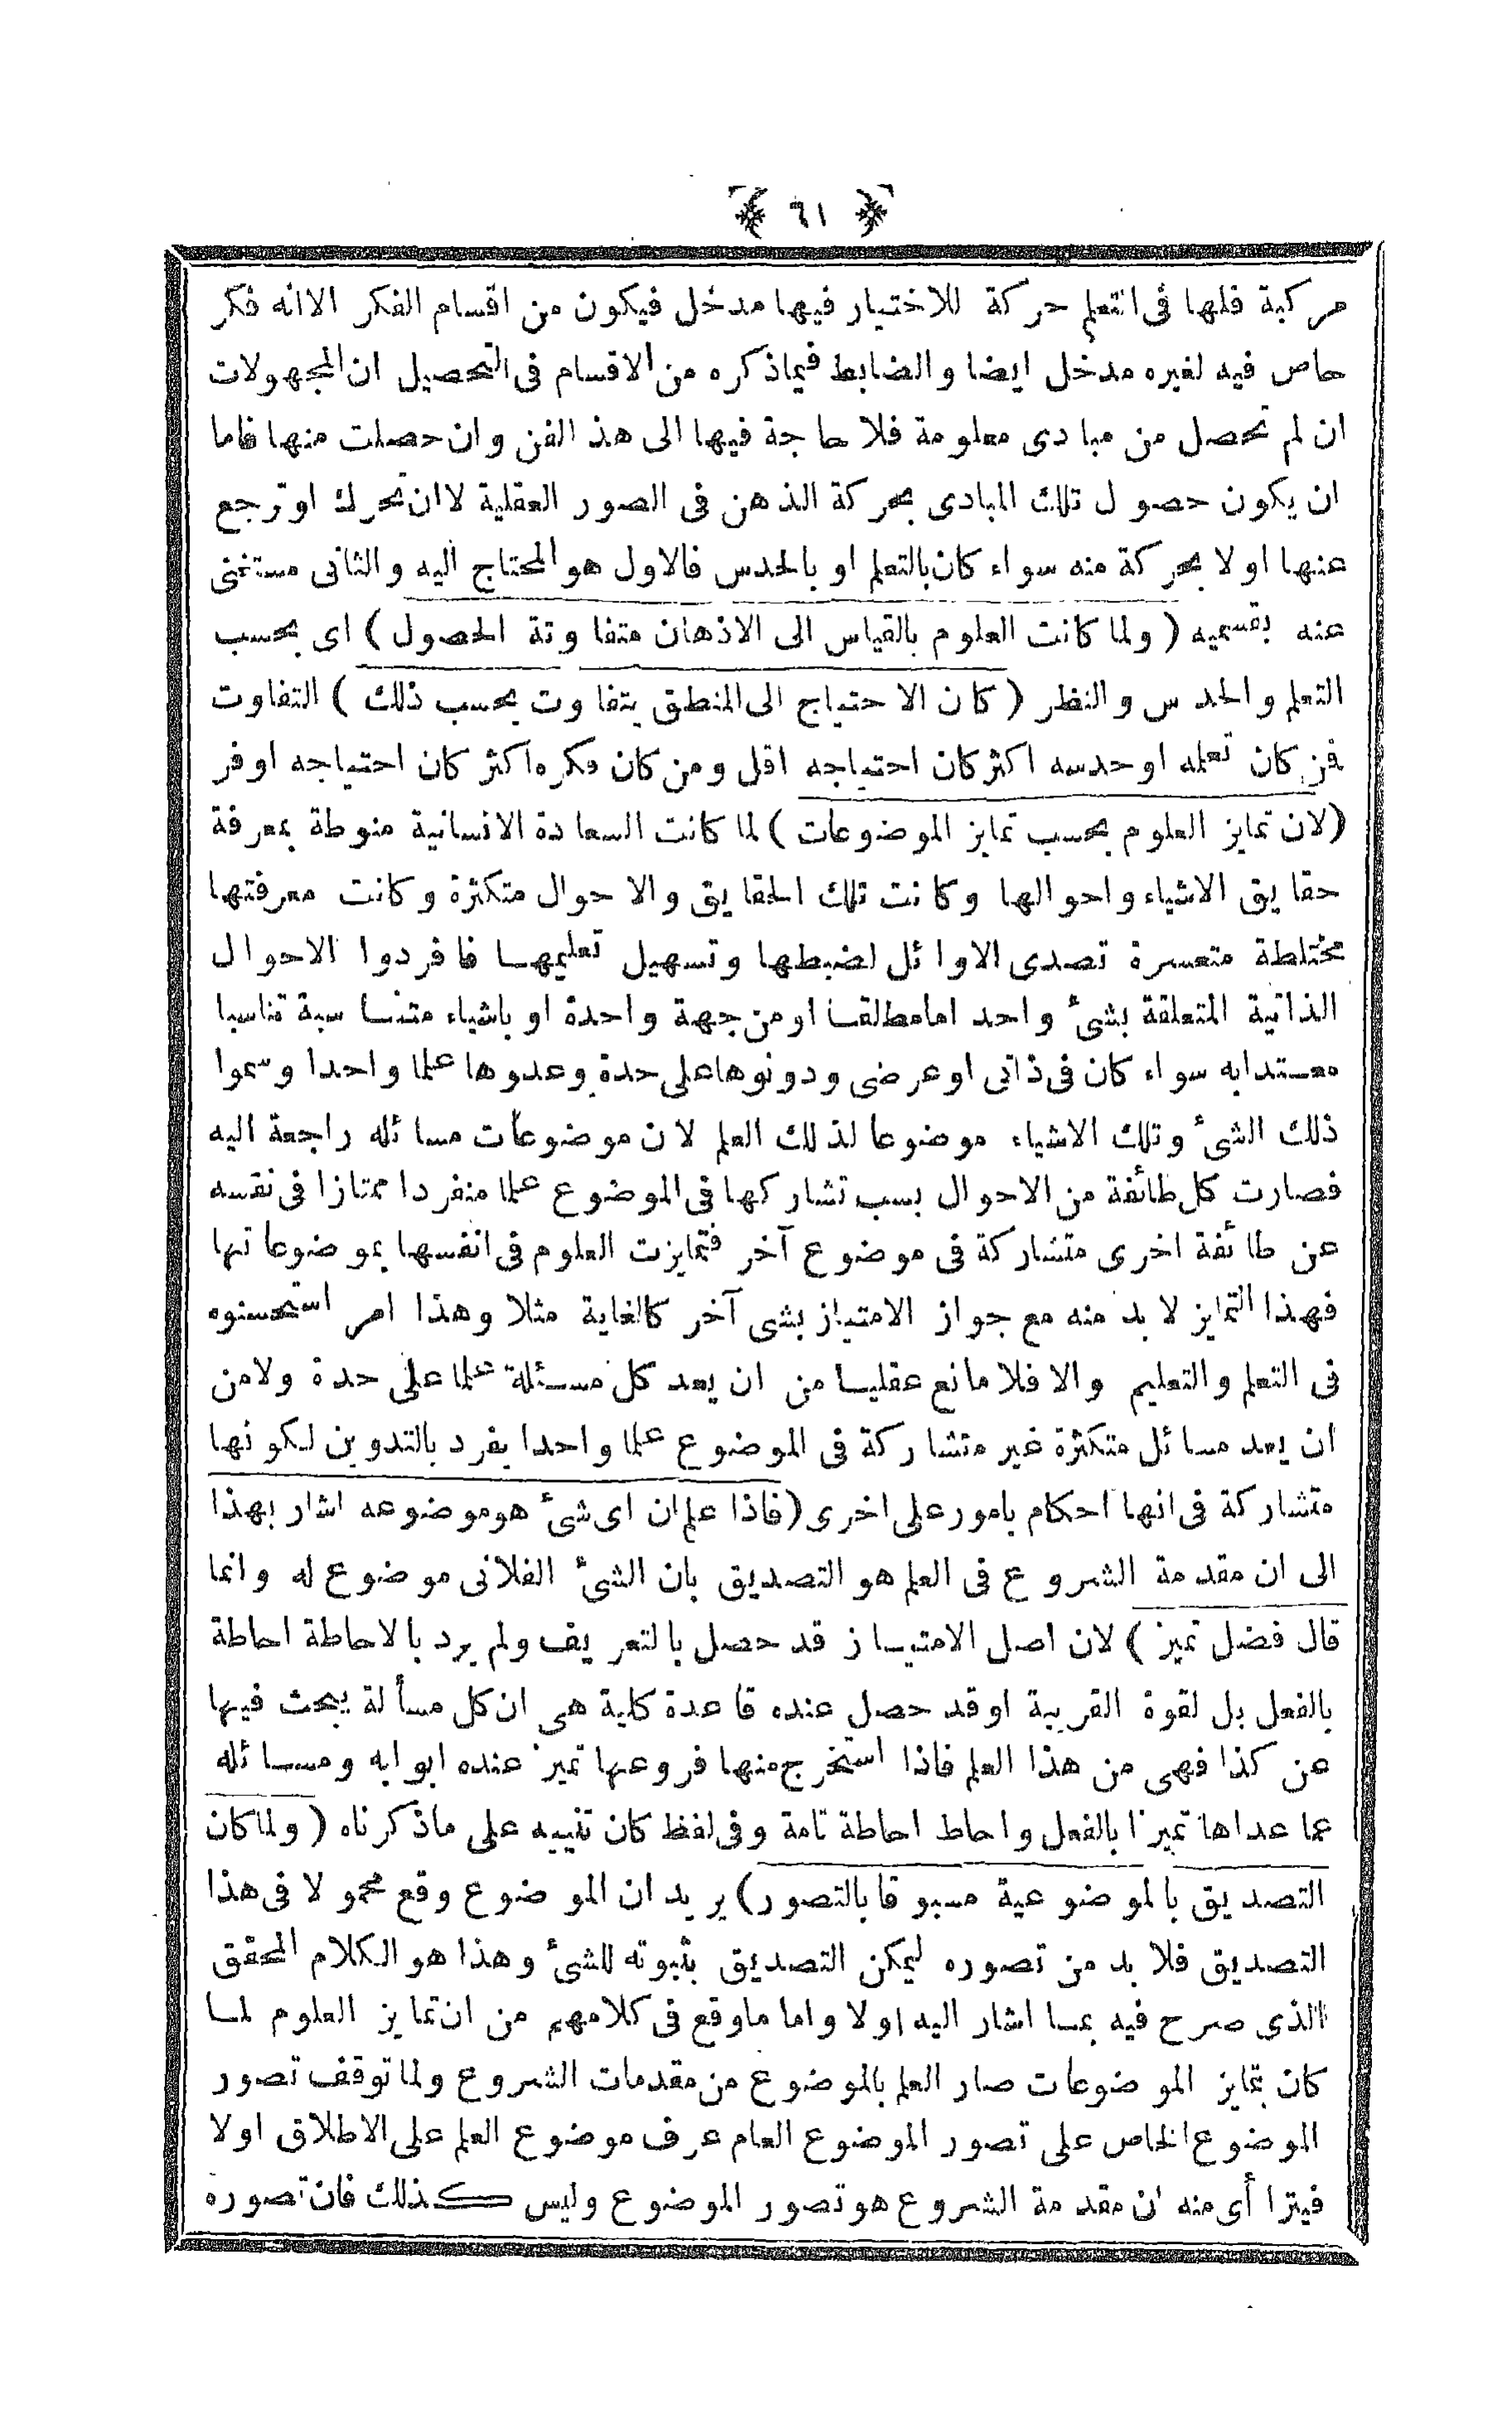 ﴿ ٦١ ﴾
مركبة فلها فى التعلم حركة للاختيار فيها مدخل فيكون من اقسام الفكر الا انه فكر
خاص فيه لغيره مدخل ايضا والضابط فيما ذكره من الاقسام فى التحصيل ان المجهولات
ان لم تحصل من مبادى معلومة فلا حاجة فيها الى هذ الفن وان حصلت منها فاما
ان يكون حصول تلك المبادى بحركة الذهن فى الصور العقلية لا ان تحرك او ترجع
عنها او لا بحركة منه سواء كان بالتعلم او بالحدس فالاول هو المحتاج اليه والثانى مستغنى
عنه بقسميه ( ولما كانت العلوم بالقياس الى الاذهان متفاوتة الحصول ) اى بحسب
التعلم والحدس والنظر ( كان الاحتياج الى المنطق يتفاوت بحسب ذلك ) التفاوت
فمن كان تعلمه او حدسه اكثر كان احتياجه اقل ومن كان فكره اكثر كان احتياجه اوفر
( لان تمايز العلوم بحسب تمايز الموضوعات ) لما كانت السعادة الانسانية منوطة بمعرفة
حقايق الاشياء واحوالها وكانت تلك الحقايق والاحوال متكثرة وكانت معرفتها
مختلطة متعسرة تصدى الاوائل لضبطها وتسهيل تعليمها فافردوا الاحوال
الذاتية المتعلقة بشئ واحد اما مطلقا او من جهة واحدة او باشياء متناسبة تناسبا
معتدابه سواء كان فى ذاتى او عرضى ودونوها على حدة وعدوها علما واحدا وسموا
ذلك الشئ وتلك الاشياء موضوعا لذلك العلم لان موضوعات مسائله راجعة اليه
فصارت كل طائفة من الاحوال بسب تشاركها فى الموضوع علما منفردا ممتازا فى نفسه
عن طائفة اخرى متشاركة فى موضوع آخر فتمايزت العلوم فى انفسها بموضوعاتها
فهذا التمايز لا بد منه مع جواز الامتياز بشى آخر كالغاية مثلا وهذا امر استحسنوه
فى التعلم والتعليم والا فلا مانع عقليا من ان يعد كل مسئلة علما على حدة ولا من
ان يعد مسائل متكثرة غير متشاركة فى الموضوع علما واحدا يفرد بالتدوين لكونها
متشاركة فى انها احكام بامور على اخرى ( فاذا علم ان اى شئ هو موضوعه اشار بهذا
الى ان مقدمة الشروع فى العلم هو التصديق بان الشئ الفلانى موضوع له وانما
قال فضل تميز ) لان اصل الامتياز قد حصل بالتعريف ولم يرد بالاحاطة احاطة
بالفعل بل لقوة القريبة او قد حصل عنده قاعدة كلية هى ان كل مسألة يبحث فيها
عن كذا فهى من هذا العلم فاذا استخرج منها فروعها تميز عنده ابوابه ومسائله
عما عداها تميزا بالفعل واحاط احاطة تامة وفى لفظ كان تنبيه على ماذكرناه ( ولما كان
التصديق بالموضوعية مسبوقا بالتصور ) يريد ان الموضوع وقع محمولا فى هذا
التصديق فلا بد من تصوره ليمكن التصديق بثبوته للشئ وهذا هو الكلام المحقق
الذى صرح فيه بما اشار اليه اولا واما ماوقع فى كلامهم من ان تمايز العلوم لما
كان بتمايز الموضوعات صار العلم بالموضوع من مقدمات الشروع ولما توقف تصور
الموضوع الخاص على تصور الموضوع العام عرف موضوع العلم على الاطلاق اولا
فيترا أى منه ان مقدمة الشروع هو تصور الموضوع وليس كذلك فان تصوره